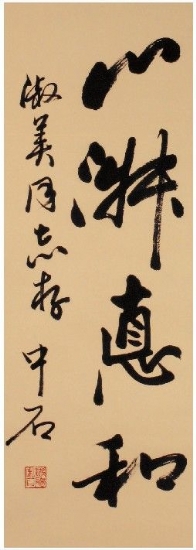 心悳和
淑美同志存
中石